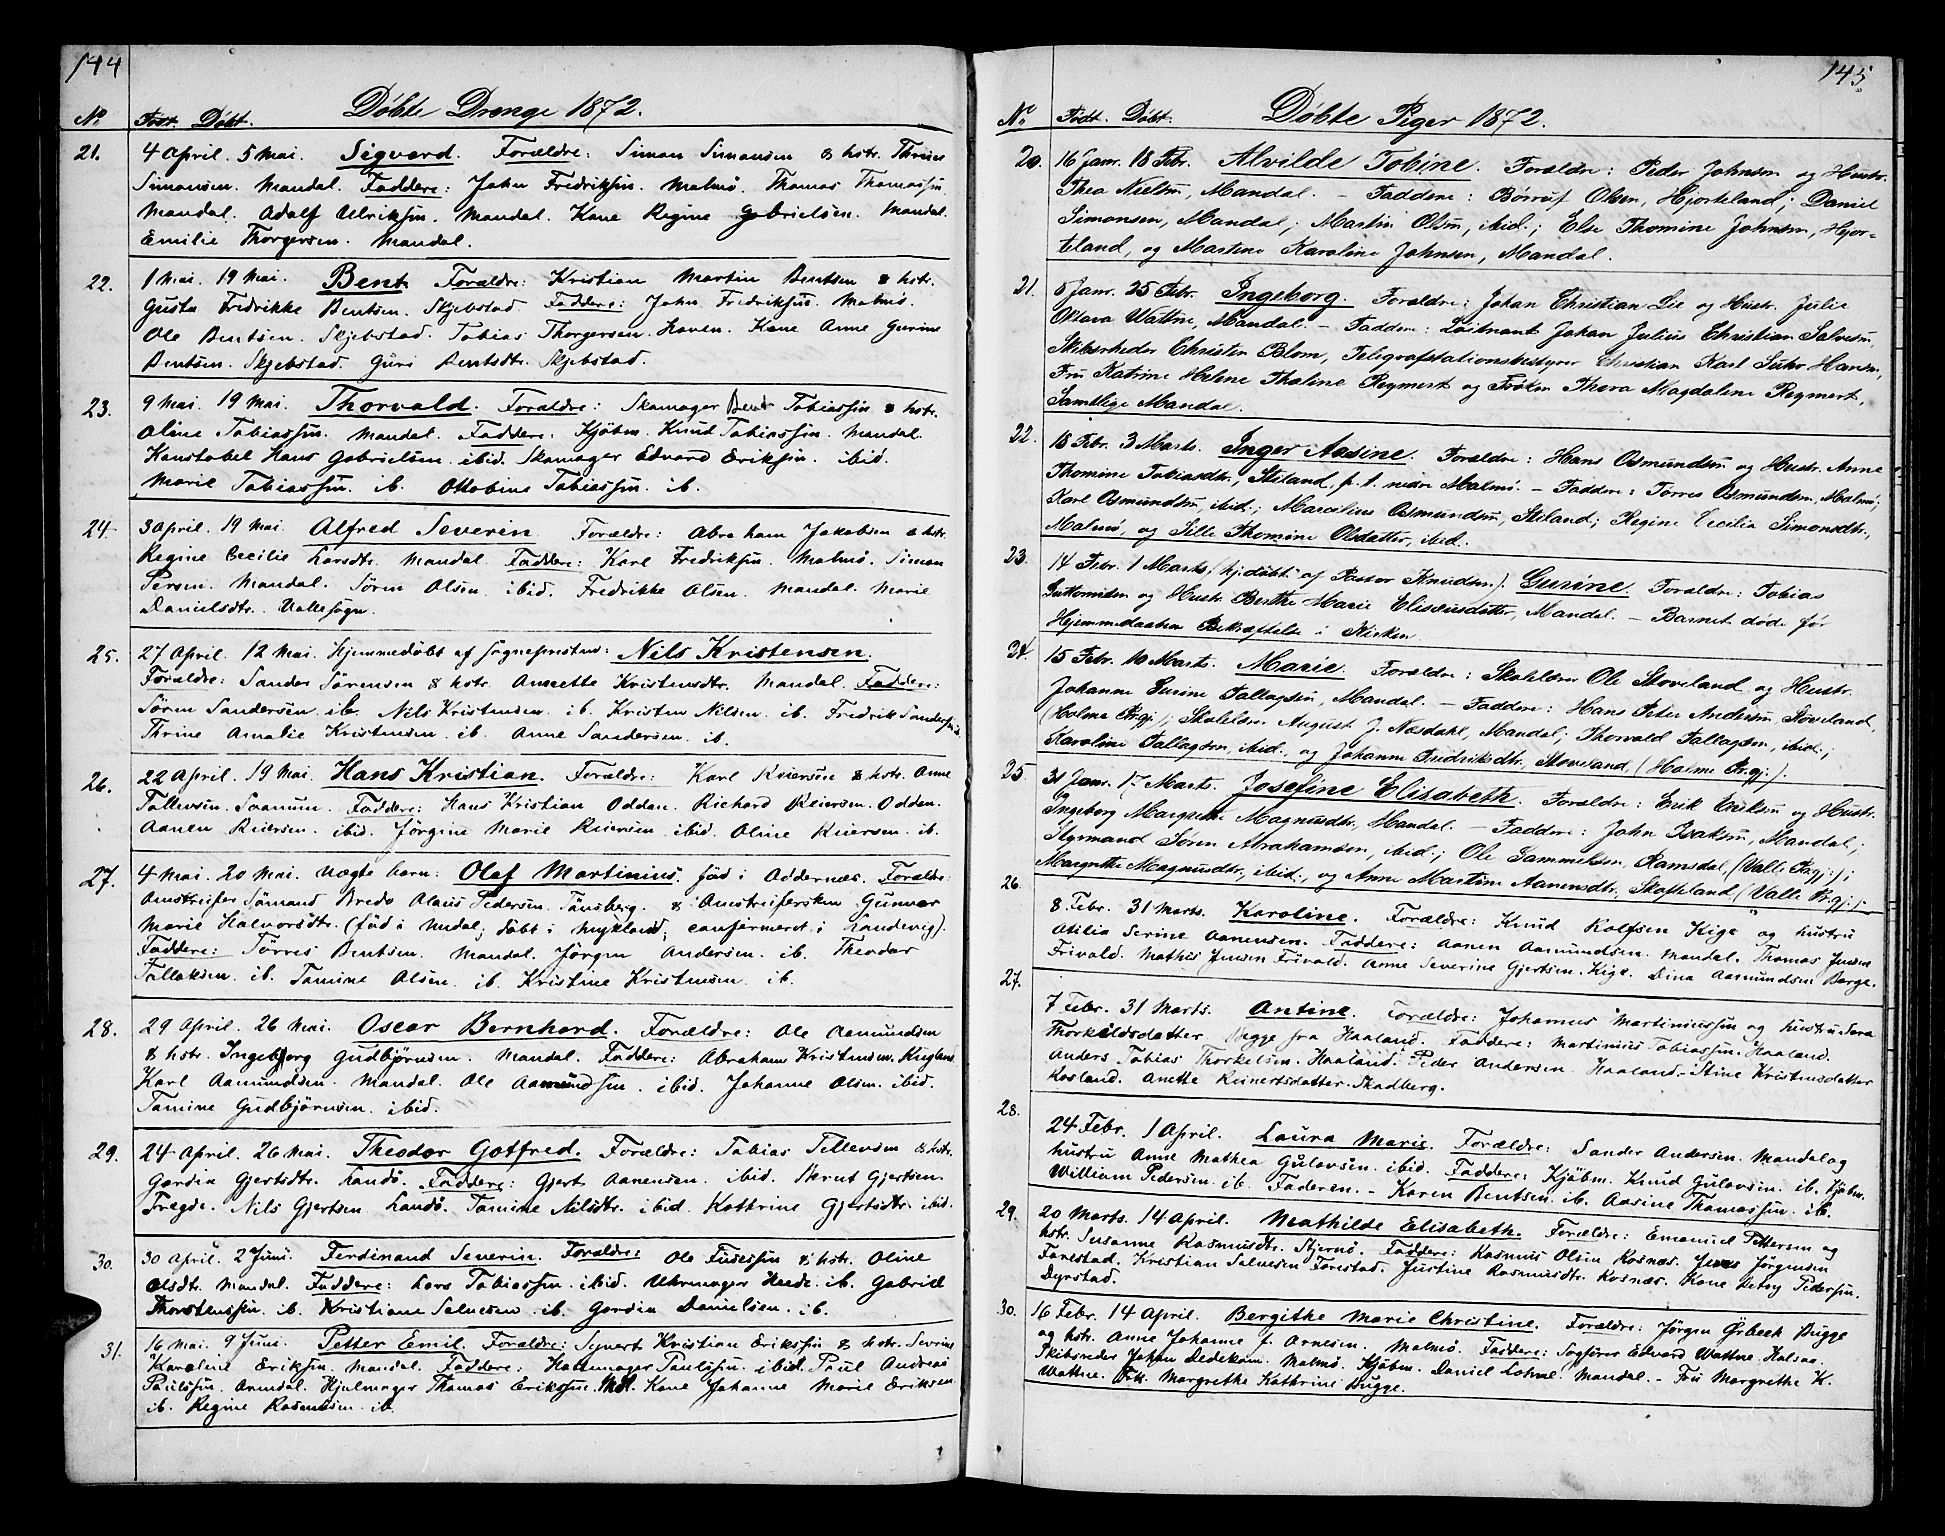 144
Døbte Drenge 1872.
No Født. Døbt.
21. 4 April. 5 Mai. Sigvard. Forældre: Simon Simonsen & hstr. Thrine
Simonsen. Mandal. Faddere: John Fredriksen. Malmø. Thomas Thomassen
Mandal. Adolf Ulriksen. Mandal. Kone Regine Gabrielsen. Mandal.
Emilie Thorgersen. Mandal.
22. 1 Mai. 19 Mai. Bent. Forældre: Kristian Martin Bentsen & hstr.
Gusta Fredrikke Bentsen. Skjebstad. Faddere: John Fredriksen. Malmø.
Ole Bentsen. Skjebstad. Tobias Thorgersen. Kone Anne Gurine
Bentsen. Skjebstad. Guri Bentsdtr. Skjebstad.
23. 9 Mai. 19 Mai. Thorvald. Forældre: Skomager Bent Tobiassen & hstr.
Oline Tobiassen. Mandal. Faddere: Kjøbm. Knud Tobiassen. Mandal.
Konstabel Hans Gabrielsen. ibid. Skomager Edvard Eriksen. ibid.
Marie Tobiassen. ib. Ottobine Tobiassen. ib.
24. 3 April. 19 Mai. Alfred Severin Forældre: Abraham Jakobsen & hstr.
Regine Cecilie Larsdtr. Mandal. Faddere: Karl Fredriksen. Malmø. Simon
Persen. Mandal. Søren Olsen. ibid. Fredrikke Olsen. Mandal. Marie
Danielsdtr. Vallesogn.
25. 27 April. 12 Mai. Hjemmedøbt af Sognepresten: Nils Kristensen.
Forældre: Sander Sørensen & hstr. Annette Kristensdtr. Mandal. Faddere:
Søren Sandersen. ib. Nils Kristensen. ib. Kristen Nilsen. ib. Fredrik Sandersen
Thrine Amalie Kristensen. ib. Anne Sandersen. ib.
26. 22 April. 19 Mai. Hans Kristian. Forældre: Karl Reiersen & hstr. Anne
Tallevsen. Saanum. Faddere: Hans Kristian Odden. Richard Reiersen. Odden.
Aanen Reiersen. ibid. Jørgine Marie Reiersen. ibid. Oline Reiersen. ib.
27. 4 Mai. 20 Mai. Uægte barn: Olaf Martinius. født i Oddernæs. Forældre:
Omstreifer Sømand Bredo Olaus Pedersen. Tønsberg. & Omstreifersken Gunnor
Marie Halvorsdtr. (fød i Mudal, døbt i Mykland, confirmeret i Landevig).
Faddere: Tørres Bentsen. Mandal. Jørgen Andersen. ib. Theodor
Tallaksen. ib. Tomine Olsen. ib. Kristine Kristensen. ib.
28. 29 April. 26 Mai. Oscar Bernhard. Forældre: Ole Aamundsen
& hstr. Ingeborg Gudbjørnsen. Mandal. Faddere: Abraham Kristensen.
Karl Aamundsen. Mandal. Ole Aamundsen. ibid. Johanne Olsen. ibid.
Tomine Gudbjørnsen. ibid.
29. 24 April. 26 Mai. Theodor Gotfred. Forældre: Tobias Tellevsen & hstr.
Gordia Gjertsdtr. Landø. Faddere: Gjert Aanensen. ibid. Gjertsen.
Fregde. Nils Gjertsen. Landø. Tomine Nilsdtr. ibid. Kathrine Gjertsdtr. ibid.
30. 30 April. 2 Juni. Ferdinand Severin. Forældre: Ole & hstr. Oline
Olsdtr. Mandal. Faddere: Lars Tobiassen. ibid. Uhrmager Heede. ib. Gabriel
Thorstenssen. ib. Kristiane Salvesen. ib. Gordia Danielsen. ib.
31. 16 Mai. 9 Juni. Petter Emil. Forældre: Syvert Kristian Erikssen & hstr. Severine
Karoline Eriksen. Mandal. Faddere: Paulssen. ibid. Poul Andreas
Paulssen. Arendal. Hjulmager Thomas Erikssen. Kone Johanne Marie Eriksen
ib. Regine Rasmussen. ib.
145
Døbte Piger 1872.
No Født. Døbt.
20. 16 Janr. 18 Febr. Alvilde Tobine. Forældre: Peder Johnsen og Hustr.
Thea Nielsen, Mandal. – Faddere: Børruf Olsen, Hjorteland; Daniel
Simonsen, Mandal; Martin Olsen, ibid.; Else Thomine Johnsen, Hjor-
teland, og Martine Karoline Johnsen, Mandal.
21. 6 Janr. 25 Febr. Ingeborg. Forældre: Johan Christian Lie og Hustr. Julie
Olava Wattne, Mandal. – Faddere: Løitnant Johan Julius Christian Salvesen,
Skibsrheder Christen Blom, Telegrafstationsbestyrer Christian Karl Suhr Hansen,
Fru Katrine Helene Thaline Regmert og Frøken Thora Magdalene Regmert,
Samtlige Mandal.
22. 18 Febr. 3 Marts. Inger Aasine. Forældre: Hans Osmundsen og Hustr. Anne
Thomine Tobiasdtr., Stiland, p. t. nedre Malmø. – Faddere: Torres Osmundsen, Malmø;
Karl Osmundsen, ibid.; Marcelius Osmundsen, Stiland; Regine Cecilia Simonsdtr.,
Malmø, og Sille Thomine Olsdatter, ibid.
23. 14 Febr. 1 Marts (hj.døbt af Pastor Knudsen). Gurine. Forældre: Tobias
Guttormsen og Hustr. Berthe Marie Elisæusdatter, Mandal. – Barnet døde før
Hjemmedaabens Bekræftelse i Kirken.
24. 15 Febr. 10 Marts. Marie. Forældre: Skolelærer Ole Stoveland og Hustr.
Johanne Gurine Fallagsen, Mandal. – Faddere: Hans Peter Andersen, Stoveland,
(Holme Prgj.), Skolelærer August J. Næsdahl, Mandal; Thorvald Tallagsen, ibid.;
Karoline Tallagsen, ibid., og Johanne Fredriksdtr, Stoveland, (Holme Prgj.).
25. 31 Janr. 17 Marts. Josefine Elisabeth. Forældre: Erik Eriksen og Hustr.
Ingeborg Margrethe Magnusdtr, Mandal. – Faddere: John Isaksen, Mandal;
Styrmand Søren Abrahamsen, ibid.; Ole Sammelsen, Ramsdal, (Valle Prgj.);
Margrethe Magnusdtr, ibid., og Anne Martine Aanensdtr, Skofteland, (Valle Prgj.).
26. 8 Febr. 31 Marts. Karoline. Forældre: Knud Rolfsen Kige og hustru
Otilia Serine Aanensen. Faddere: Aanen Aamundsen. Mandal. Thomas Jensen
Frivold. Mathis Jensen Frivold. Anne Severine Gjertsen. Kige. Dina Aamundsen Berge.
27. 7 Febr. 31 Marts. Antine. Forældre: Johannes Martiniussen og hustru Sara
Thorkildsdatter Begge fra Haaland. Faddere: Martinius Tobiassen. Haaland.
Anders Tobias Thorkelsen. Haaland. Peder Andersen Haaland. – Stine Kristensdatter
Rosland. Anette Reinertsdatter. Skadberg.
28. 24 Febr. 1 April. Laura Marie. Forældre: Sander Andersen. Mandal og
hustru Anne Mathea Gulovsen. ibid. Faddere: Kjøbm. Knud Gulovsen. ib. Kjøbm.
William Pedersen. ib. Faderen. – Karen Bentsen. ib. Aasine Thomassen. ib.
29. 20 Marts. 14 April. Mathilde Elisabeth. Forældre: Emanuel Pettersen og
hstr. Susanne Rasmusdtr. Stjernø. Faddere: Rasmus Olsen Rosnæs. Jens Jørgensen
Tørestad. Kristian Salvesen Tørestad. Justine Rasmusdtr. Rosnæs. Kone Pedersen.
Dyrstad.
30. 16 Febr. 14 April. Bergithe Marie Christine. Forældre: Jørgen Ørbeck Bugge
og hstr. Anne Johanne f. Arnesen. Malmø. Faddere: Sagfører Edvard Wattne. Halsaa.
Skibsreder Johan Dedekam. Malmø. Kjøbm. Daniel Lohne. Mandal. – Fru Margrethe K.
Wattne. Frk. Margrethe Kathrine Bugge.